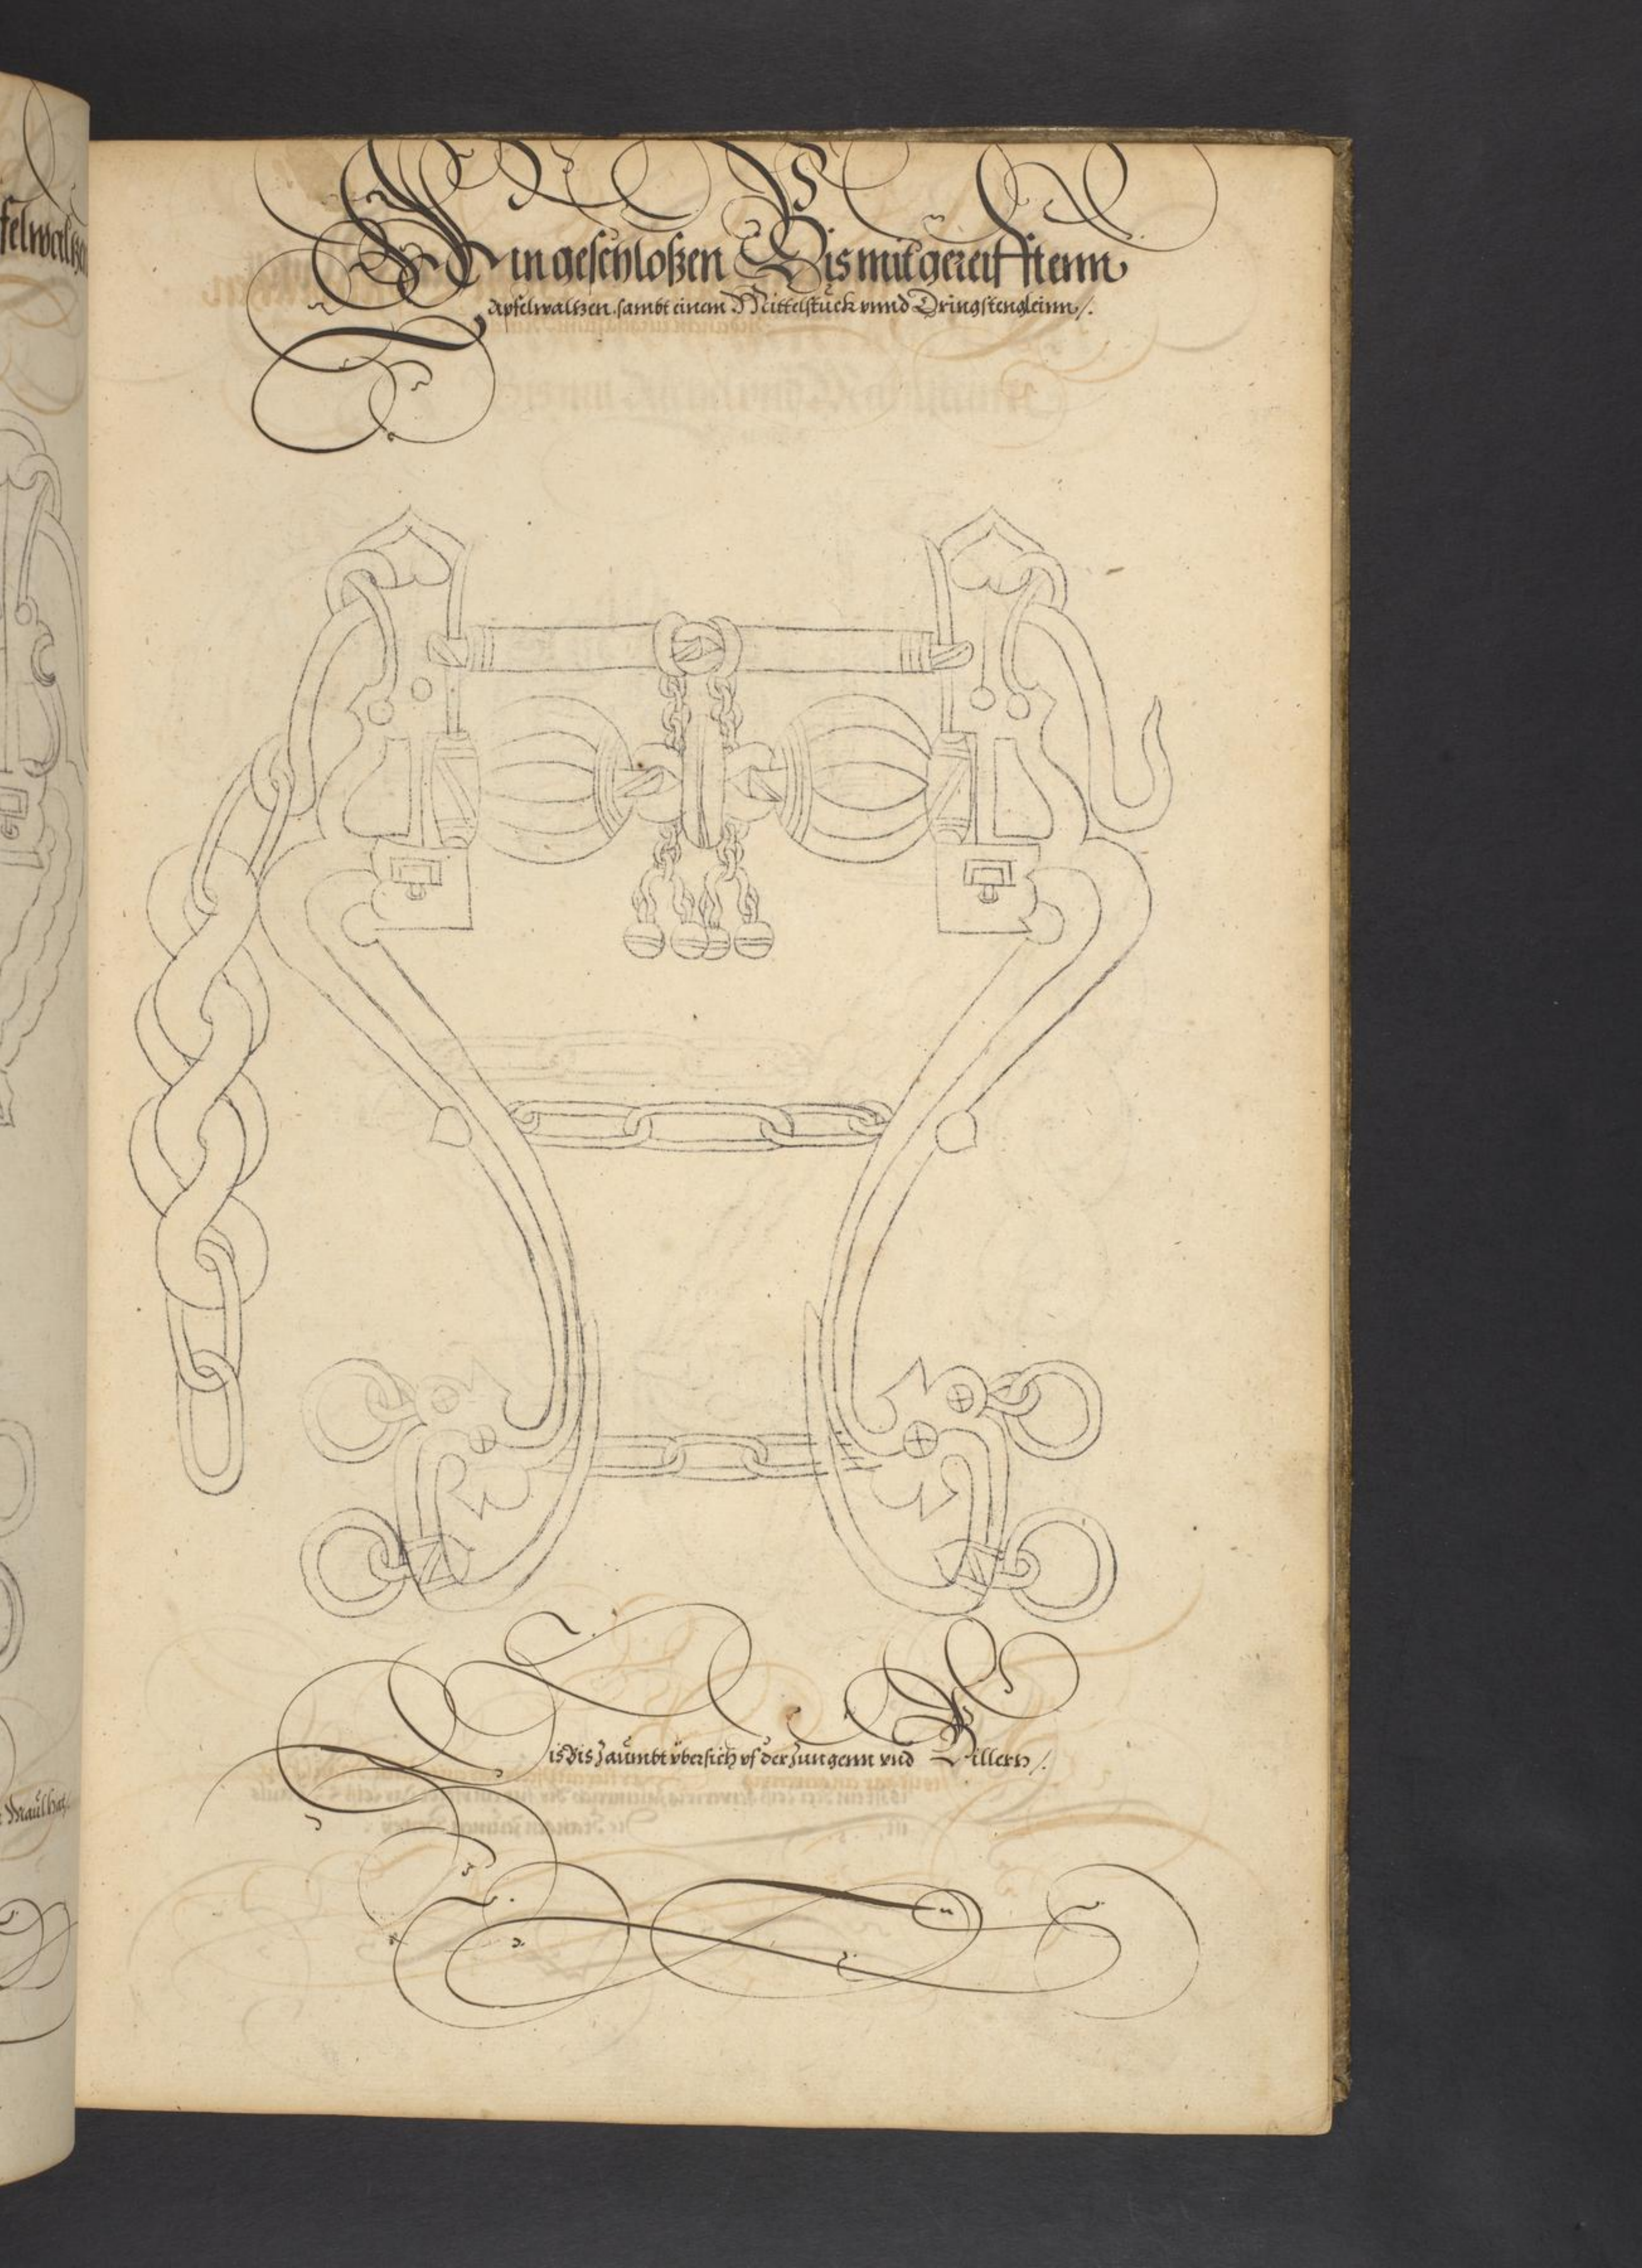 felwaltzen
Ein geschloßen Bis mit gereifftenn
Apfelwaltzen, sambt einem Mittelstück vnnd Dringstengleinn /.
Dis Bis Zaumbt vbersich vf der Zungenn vnd Billern /.
Maul hat /